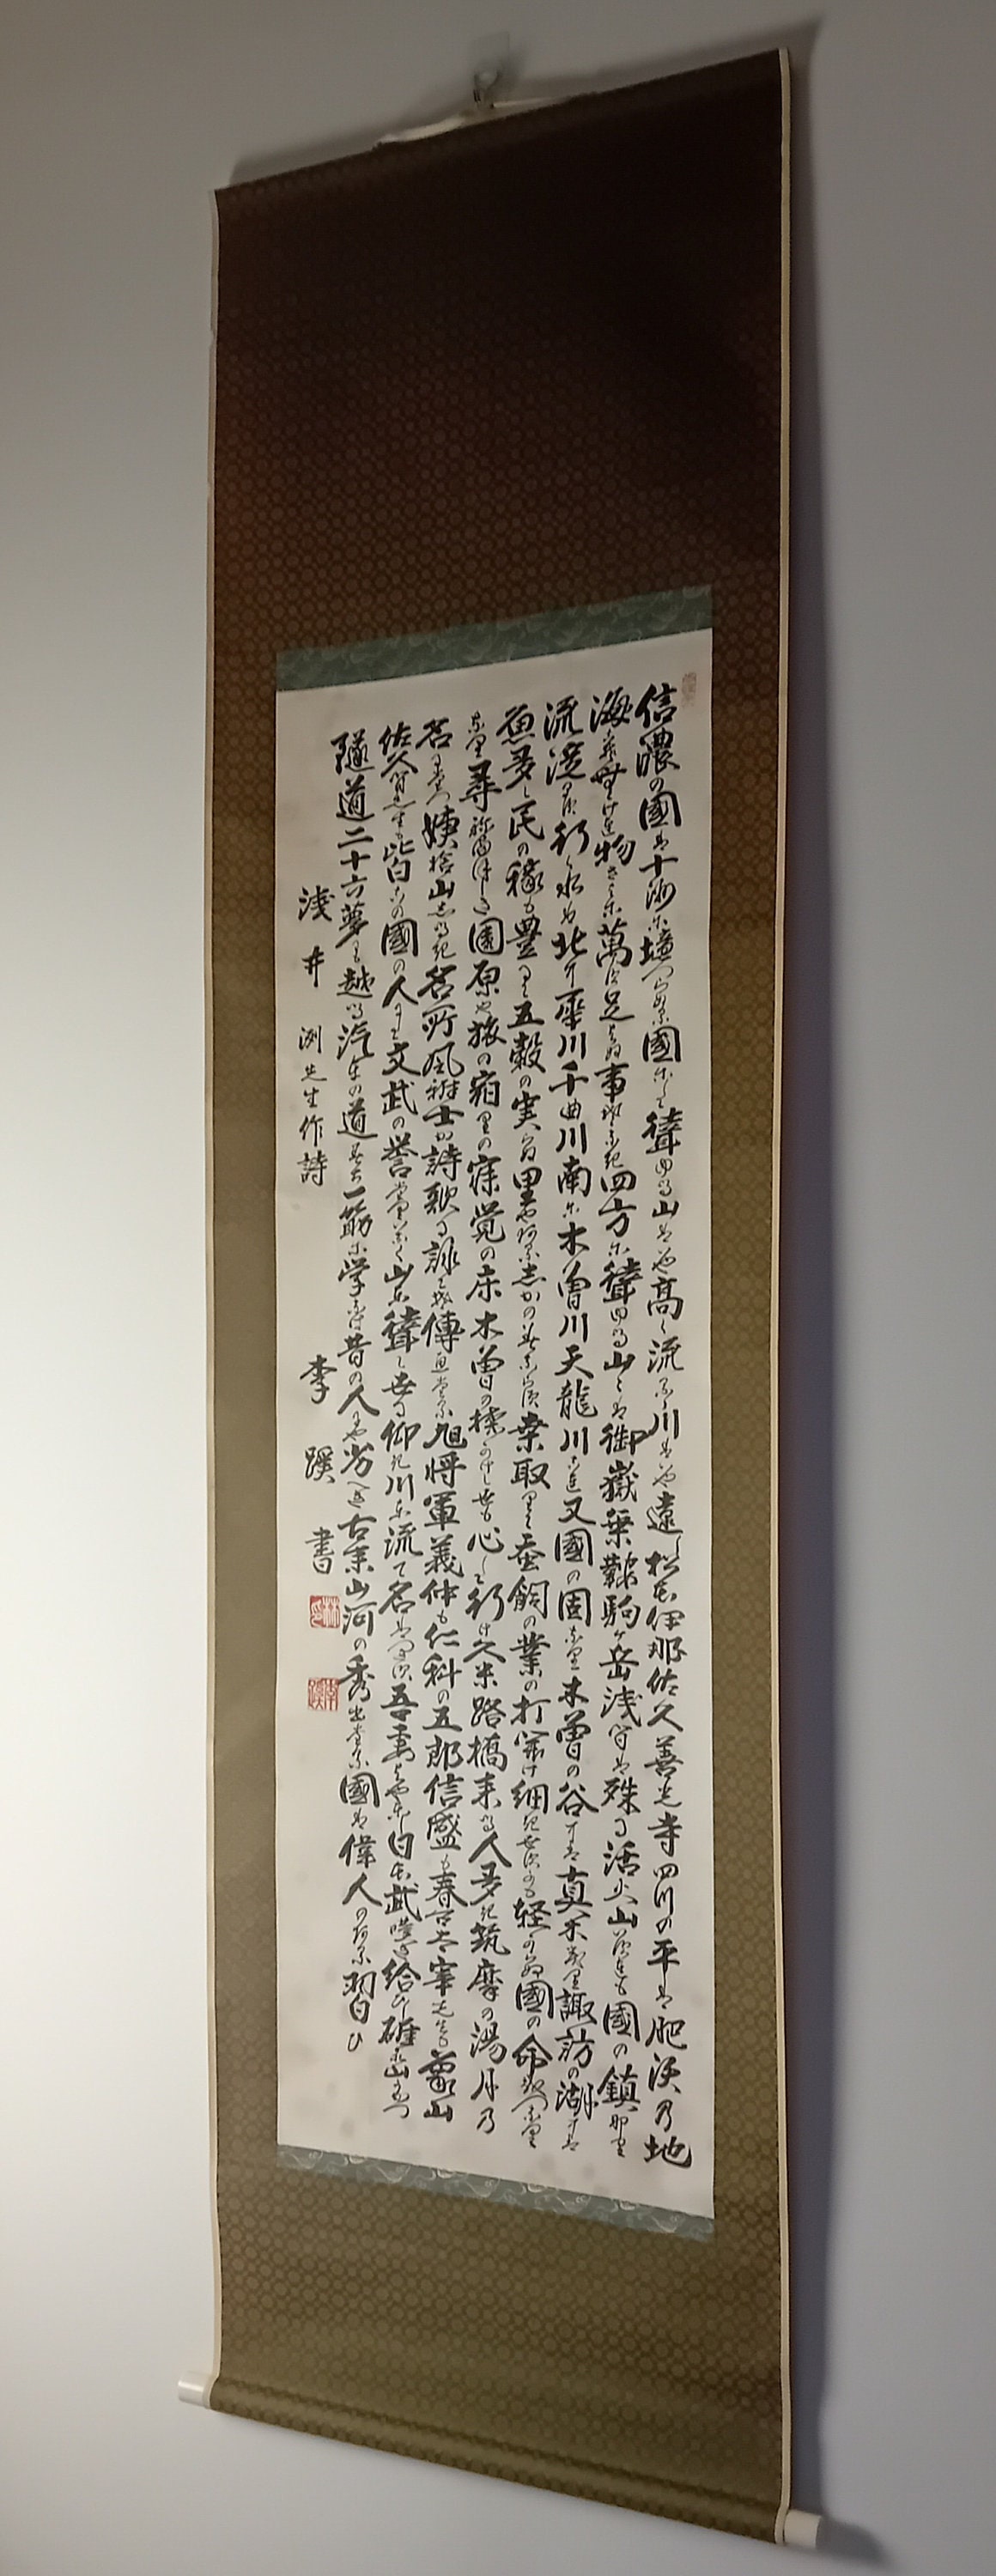 信濃の國は十州に境つらなる國にして聳ゆる山はいや高く流るゝ川はいや遠し松本伊那佐久善光寺四つの平は肥沃乃地
海こそ無けれ物さわに萬足らはぬ事そなき四方に聳ゆる山々は御嶽乗鞍駒ヶ岳浅間は殊に活火山いつれも國の鎮なり
流淀ます行く水は北に犀川千曲川南に木曽川天龍川これ又國の固なり木曽の谷には真木茂り諏訪の湖には
魚多し民の稼も豊にて五穀の実らぬ里やあるしかのみならす桑取りて蚕飼の業の打ひらけ細きよすかも軽からぬ國の命を
尋ねまほしき園原や旅の宿りの寐覚の床木曽の桟かけし世も心して行け久米路橋来る人多き筑摩の湯月乃
名にたつ姨捨山しるき名所風雅士か詩歌に詠てそ傳へたる旭将軍義仲も仁科の五郎信盛も春台太宰先生も象山
佐久間先生も皆此の國の人にして文武の誉たくひなく山と聳えて世に仰き川と流れて名は尽す吾妻はやとし日本武嘆き給ひし碓氷山穿つ
隧道二十六夢にも越ゆる汽車の道みち一筋に学ひなは昔の人にや劣へき古来山河の秀出たる國は偉人のある習ひ
浅井洌先生作詩 李蹊書